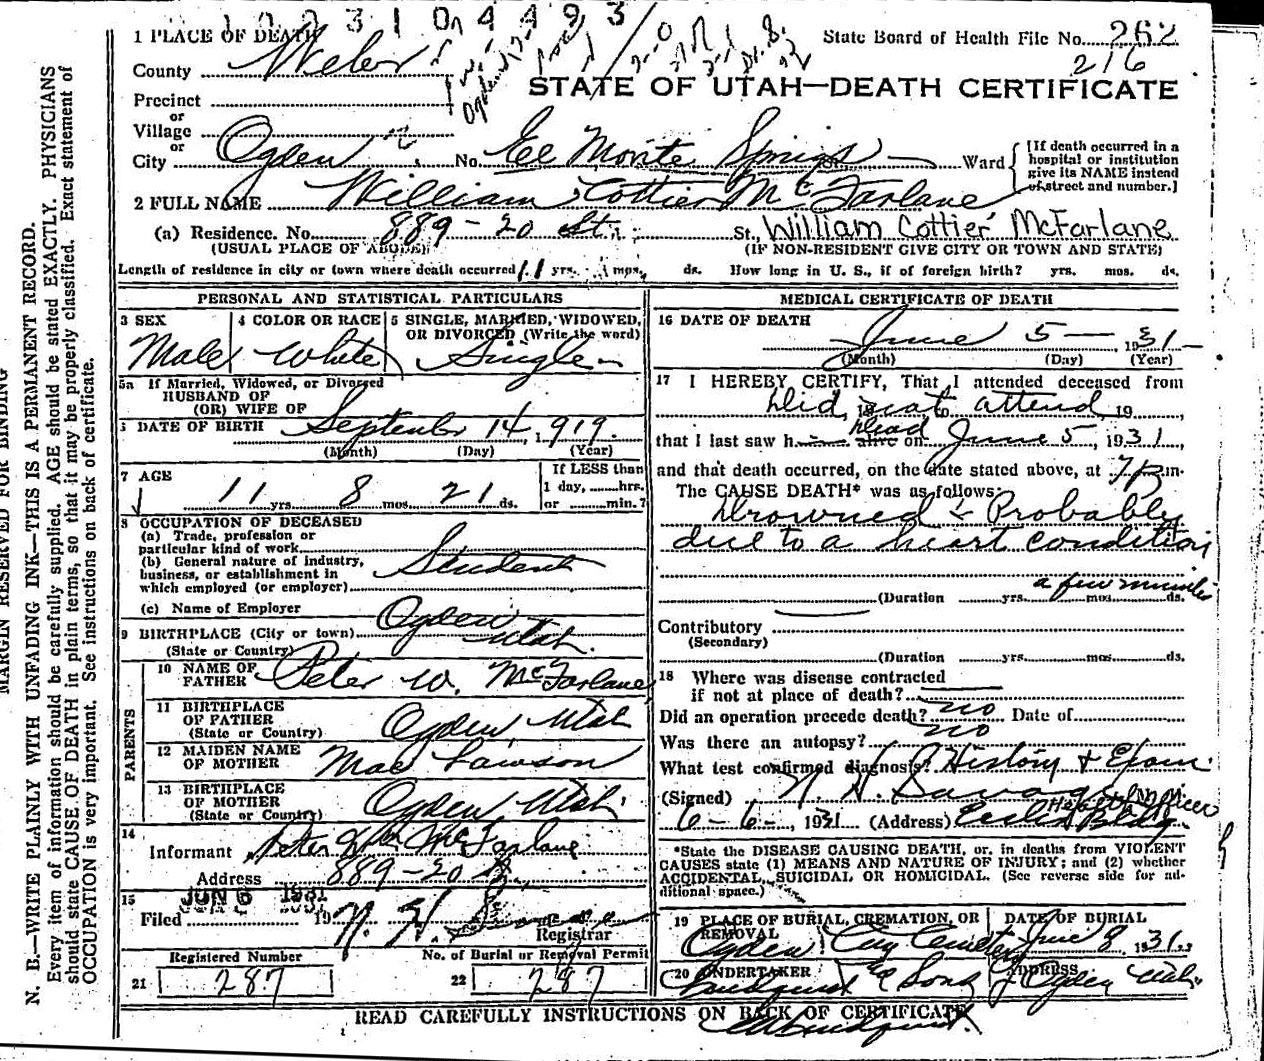 1 PLACE OF DEATH
State Board of Health File No. 262
216
County Weber
STATE OF UTAH—DEATH CERTIFICATE
Precinct
or
Village
or
City Ogden No. El Monte Springs Ward
[If death occurred in a hospital or institution give its NAME instead of street and number.]
2 FULL NAME William Cottier McFarlane
(a) Residence. No. 889-20 St. St., William Cottier McFarlane
(USUAL PLACE OF ABODE) (IF NON-RESIDENT GIVE CITY OR TOWN AND STATE)
Length of residence in city or town where death occurred 11 yrs. mos. ds. How long in U. S., if of foreign birth? yrs. mos. ds.
PERSONAL AND STATISTICAL PARTICULARS
3 SEX 4 COLOR OR RACE 5 SINGLE, MARRIED, WIDOWED, OR DIVORCED (Write the word)
Male White Single
5a If Married, Widowed, or Divorced
HUSBAND OF
(OR) WIFE OF
DATE OF BIRTH September 14, 1919.
(Month) (Day) (Year)
7 AGE
11 yrs. 8 mos. 21 ds.
If LESS than
1 day, hrs.
or min.?
8 OCCUPATION OF DECEASED
(a) Trade, profession or
particular kind of work
(b) General nature of industry,
business, or establishment in
which employed (or employer)
Student
(c) Name of Employer
9 BIRTHPLACE (City or town) Ogden
(State or Country) Utah.
PARENTS
10 NAME OF FATHER Peter W. McFarlane
11 BIRTHPLACE OF FATHER (State or Country) Ogden, Utah
12 MAIDEN NAME OF MOTHER Mae Lawson
13 BIRTHPLACE OF MOTHER (State or Country) Ogden, Utah.
14
Informant Peter Wm McFarlane
Address 889-20 St.
15
Filed JUN 6 1931 19 N. H. Savage
Registrar
Registered Number No. of Burial or Removal Permit
21 287 22 287
MEDICAL CERTIFICATE OF DEATH
16 DATE OF DEATH
June 5 1931
(Month) (Day) (Year)
17 I HEREBY CERTIFY, That I attended deceased from
Did, 19 not to attend 19 ,
that I last saw h alive dead on June 5, 1931,
and that death occurred, on the date stated above, at 7P m.
The CAUSE DEATH* was as follows:
Drowned & Probably
due to a heart condition
a few minutes
(Duration yrs. mos. ds.
Contributory
(Secondary)
(Duration yrs. mos. ds.
18 Where was disease contracted
if not at place of death?
Did an operation precede death? no Date of
Was there an autopsy? no
What test confirmed diagnosis? History & Exam.
(Signed) N. H. Savage M. D.
Health Officer
6-6-, 1931 (Address) Eccles Bldg.
*State the DISEASE CAUSING DEATH, or, in deaths from VIOLENT
CAUSES state (1) MEANS AND NATURE OF INJURY; and (2) whether
ACCIDENTAL, SUICIDAL OR HOMICIDAL. (See reverse side for ad-
ditional space.)
19 PLACE OF BURIAL, CREMATION, OR REMOVAL DATE OF BURIAL
Ogden City Cemetery June 8 1931
20 UNDERTAKER ADDRESS
Lindquist & Sons Ogden Utah
READ CAREFULLY INSTRUCTIONS ON BACK OF CERTIFICATE
MARGIN RESERVED FOR BINDING
N. B.—WRITE PLAINLY WITH UNFADING INK—THIS IS A PERMANENT RECORD.
Every item of information should be carefully supplied. AGE should be stated EXACTLY. PHYSICIANS
should state CAUSE OF DEATH in plain terms, so that it may be properly classified. Exact statement of
OCCUPATION is very important. See instructions on back of certificate.